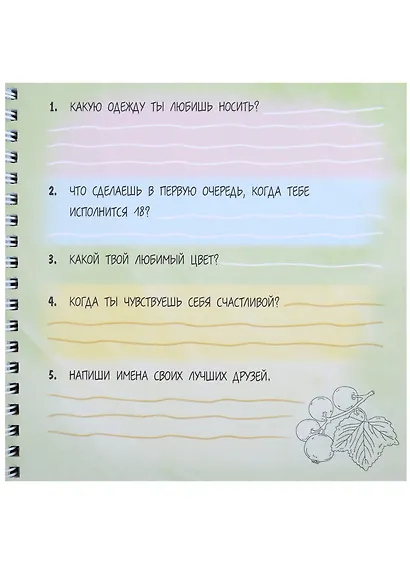 1. КАКУЮ ОДЕЖДУ ТЫ ЛЮБИШЬ НОСИТЬ?
2. ЧТО СДЕЛАЕШЬ В ПЕРВУЮ ОЧЕРЕДЬ, КОГДА ТЕБЕ
ИСПОЛНИТСЯ 18?
3. КАКОЙ ТВОЙ ЛЮБИМЫЙ ЦВЕТ?
4. КОГДА ТЫ ЧУВСТВУЕШЬ СЕБЯ СЧАСТЛИВОЙ?
5. НАПИШИ ИМЕНА СВОИХ ЛУЧШИХ ДРУЗЕЙ.